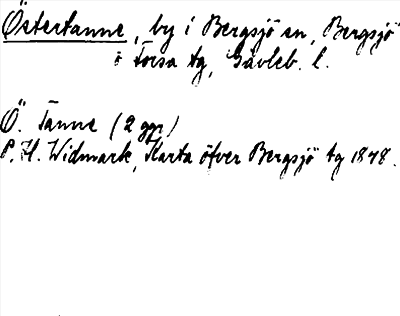 Östertanne, by i Bergsjö sn, Bergsjö
o Forsa tg, Gävleb. l.
Ö. Tanne (2 ggr)
P. H. Widmark, Karta öfver Bergsjö tg 1878.